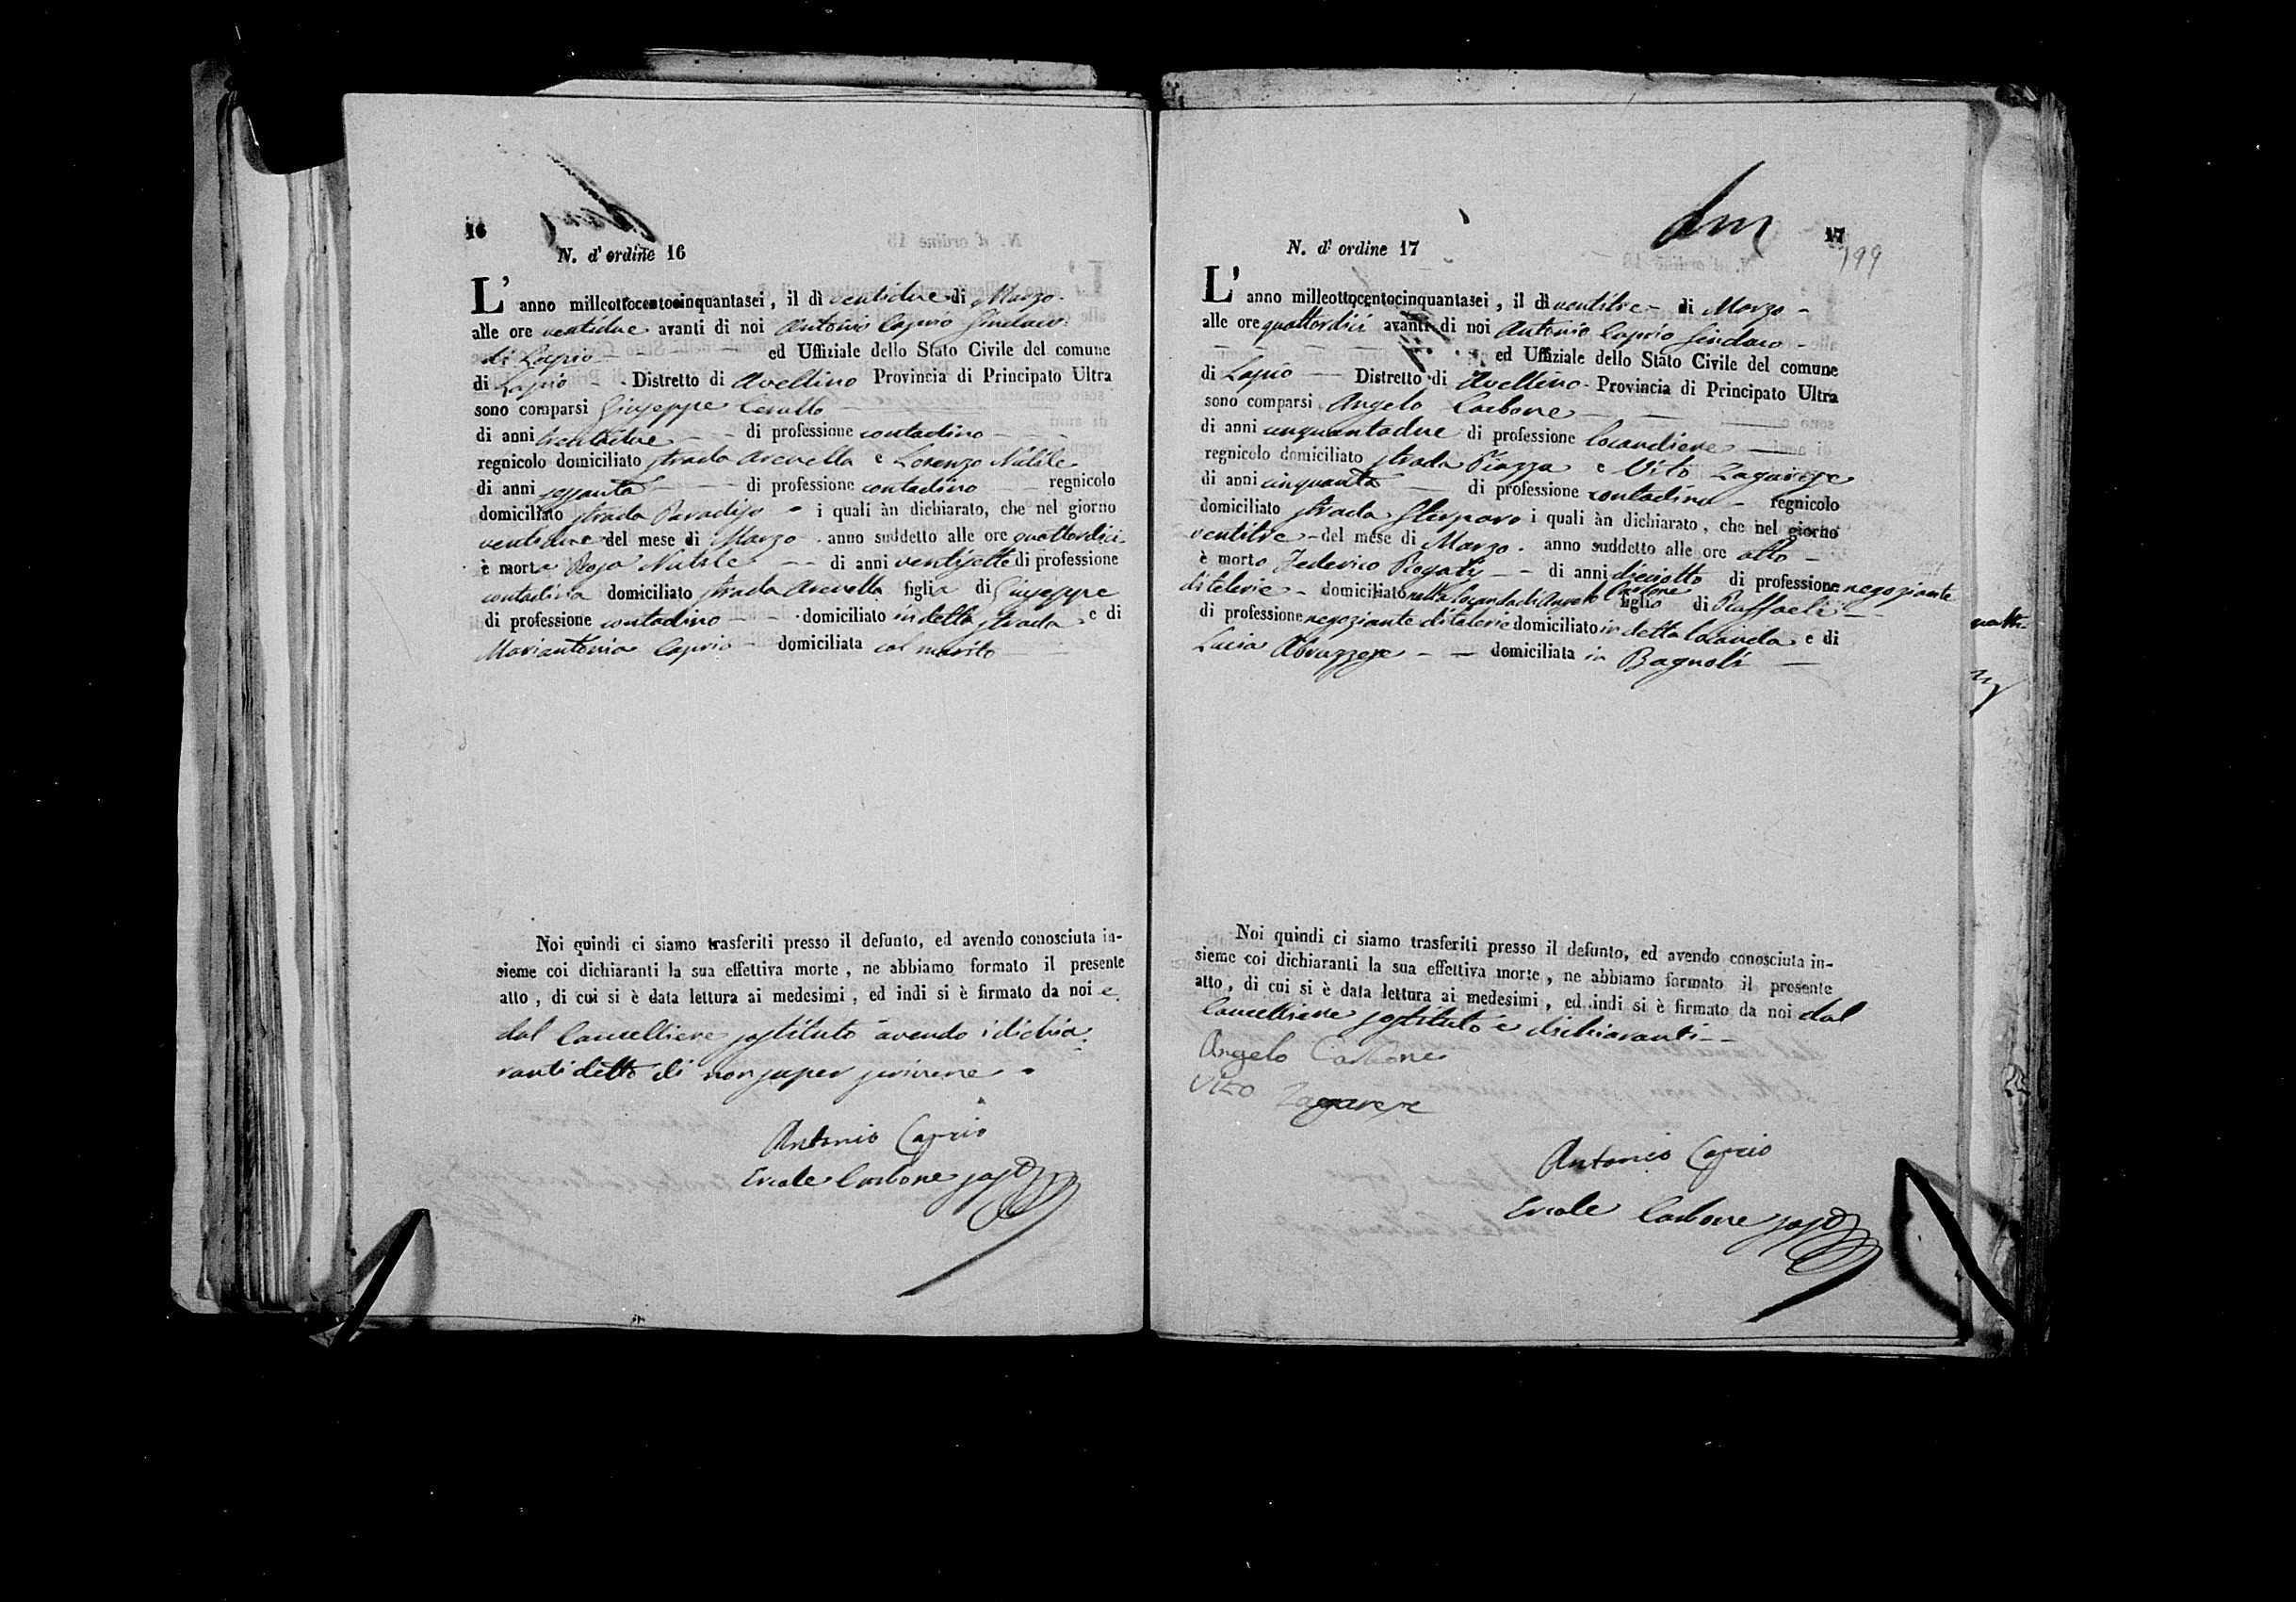 16
N. d' ordine 16
L' anno milleottocentocinquantasei, il dì ventidue di Marzo
alle ore ventidue avanti di noi Antonio Caprio Sindaco
di Lapio ed Uffiziale dello Stato Civile del comune
di Lapio Distretto di Avellino Provincia di Principato Ultra
sono comparsi Giuseppe Cerullo
di anni trentadue di professione contadino
regnicolo domiciliato strada Arenella e Lorenzo Nitile
di anni sessanta di professione contadino regnicolo
domiciliato strada Paradiso i quali àn dichiarato, che nel giorno
ventidue del mese di Marzo anno suddetto alle ore quattordici
è morta Rosa Nitile di anni ventisette di professione
contadina domiciliato strada Arenella figlia di Giuseppe
di professione contadino domiciliato in detta strada e di
Mariantonia Caprio domiciliata col marito
Noi quindi ci siamo trasferiti presso il defunto, ed avendo conosciuta in-
sieme coi dichiaranti la sua effettiva morte, ne abbiamo formato il presente
atto, di cui si è data lettura ai medesimi, ed indi si è firmato da noi e
dal Cancelliere sostituto avendo i dichia
ranti detto di non saper scrivere
Antonio Caprio
Ercole Carbone sost
17
199
N. d' ordine 17
L' anno milleottocentocinquantasei, il dì ventitre di Marzo
alle ore quattordici avanti di noi Antonio Caprio Sindaco
ed Uffiziale dello Stato Civile del comune
di Lapio Distretto di Avellino Provincia di Principato Ultra
sono comparsi Angelo Carbone
di anni cinquantadue di professione locandiere
regnicolo domiciliato strada Piazza e Vito Zagarese
di anni cinquanta di professione contadino regnicolo
domiciliato strada Sterparo i quali àn dichiarato, che nel giorno
ventitre del mese di Marzo anno suddetto alle ore otto
è morto Federico Rogati di anni dieciotto di professione negoziante
di telerie domiciliato nella locanda di Angelo Carbone figlio di Raffaele
di professione negoziante di telerie domiciliato in detta locanda e di
Lucia Abruzzese domiciliata in Bagnoli
Noi quindi ci siamo trasferiti presso il defunto, ed avendo conosciuta in-
sieme coi dichiaranti la sua effettiva morte, ne abbiamo formato il presente
atto, di cui si è data lettura ai medesimi, ed indi si è firmato da noi dal
Cancelliere sostituto e dichiaranti
Angelo Carbone
Vito Zagarese
Antonio Caprio
Ercole Carbone sost